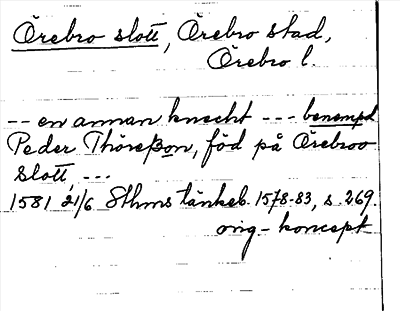 Örebro slott, Örebro stad,
Örebro l.
-- en annan knecht --- benempd
Peder Thöreßon, föd på Örebroo
Slott, ---
1581 21/6 Sthms tänkeb. 1578-83, s. 269.
orig-koncept